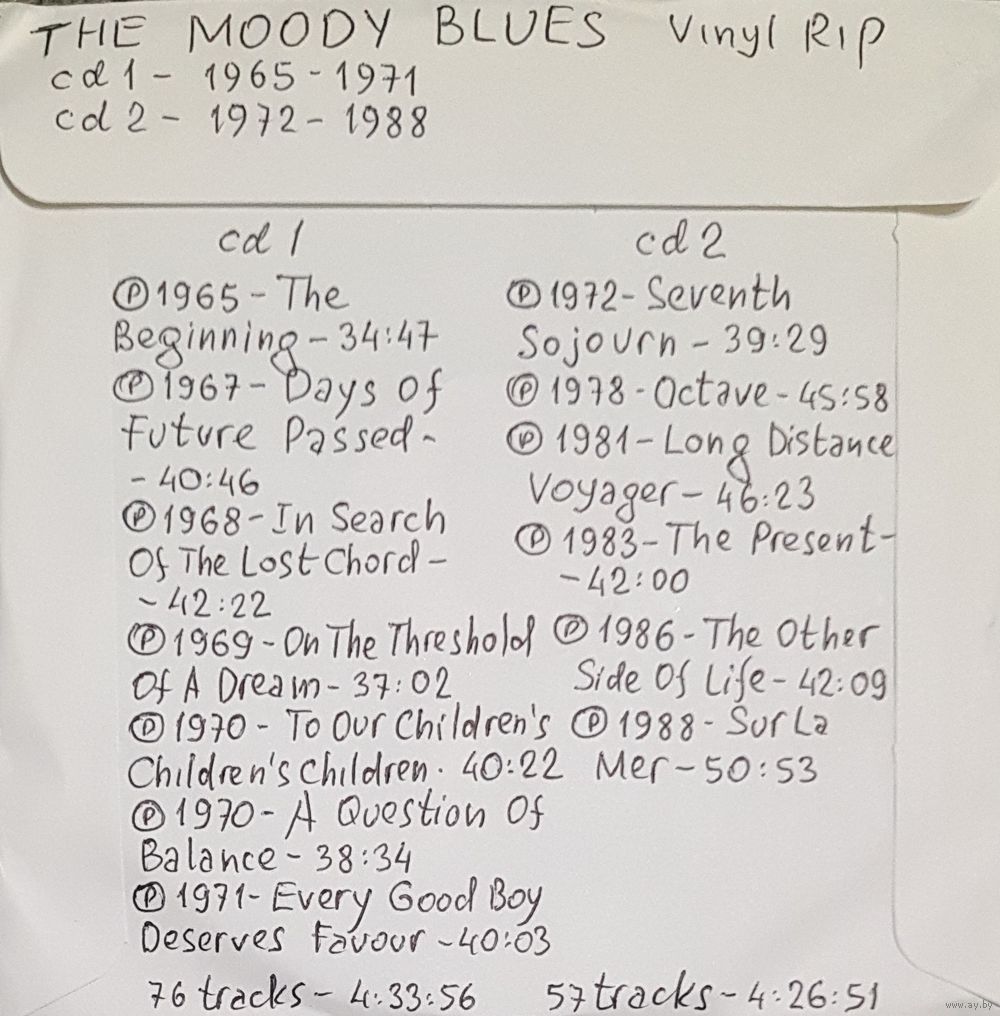 THE MOODY BLUES Vinyl Rip
cd 1 - 1965 - 1971
cd 2 - 1972 - 1988
cd 1
Ⓟ 1965 - The
Beginning - 34:47
Ⓟ 1967 - Days Of
Future Passed -
- 40:46
Ⓟ 1968 - In Search
Of The Lost Chord -
- 42:22
Ⓟ 1969 - On The Threshold
Of A Dream - 37:02
Ⓟ 1970 - To Our Children's
Children's Children. 40:22
Ⓟ 1970 - A Question Of
Balance - 38:34
Ⓟ 1971 - Every Good Boy
Deserves Favour - 40:03
76 tracks - 4:33:56
cd 2
Ⓟ 1972 - Seventh
Sojourn - 39:29
Ⓟ 1978 - Octave - 45:58
Ⓟ 1981 - Long Distance
Voyager - 46:23
Ⓟ 1983 - The Present -
- 42:00
Ⓟ 1986 - The Other
Side Of Life - 42:09
Ⓟ 1988 - Sur La
Mer - 50:53
57 tracks - 4:26:51
www.ay.by